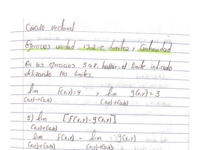 Cálculo Vectorial
Ejercicios unidad 13.2 Límites y Continuidad
En los ejercicios 5 a 8, hallar el límite indicado
utilizando los límites.
lim f(x,y) = 4 , lim g(x,y) = 3
(x,y)→(a,b) (x,y)→(a,b)
5) lim [f(x,y) - g(x,y)]
(x,y)→(a,b)
lim f(x,y) - lim g(x,y)
(x,y)→(a,b) (x,y)→(a,b)